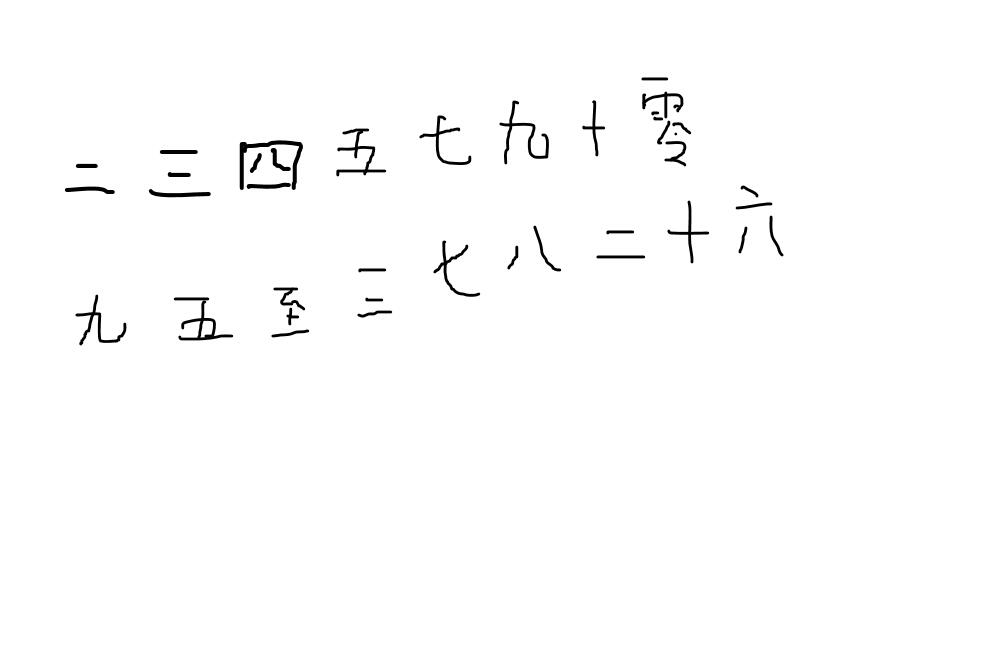 二三四五七九十零
九五至三七八二十六